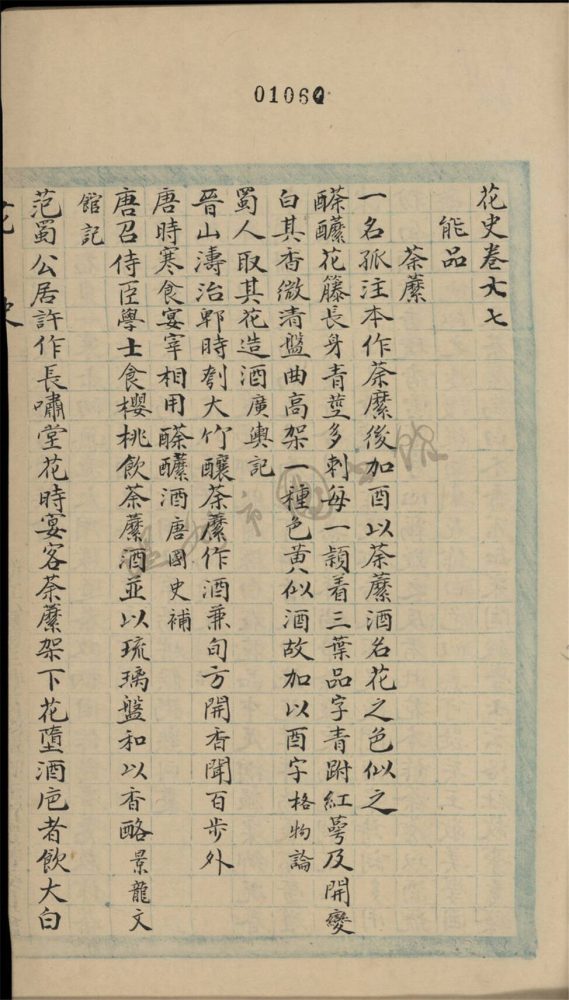 01060
花史卷七
能品
荼蘼
一名孤注本作荼縻後加酉以荼蘼酒名花之色似之
醾花籐長身青莖多刺每一頴着三葉品字青跗紅萼及開變
白其香微清盤曲高架一種色黃似酒故加以酉字格物論
蜀人取其花造酒廣輿記
晉山濤治郫時刳大竹釀荼縻作酒兼旬方開香聞百步外
唐時寒食宴宰相用酒唐國史補
唐召侍臣學士食櫻桃飲荼蘼酒並以琉璃盤和以香酪景龍文
館記
范蜀公居許作長嘯堂花時宴客荼蘼架下花墮酒卮者飲大白
花史